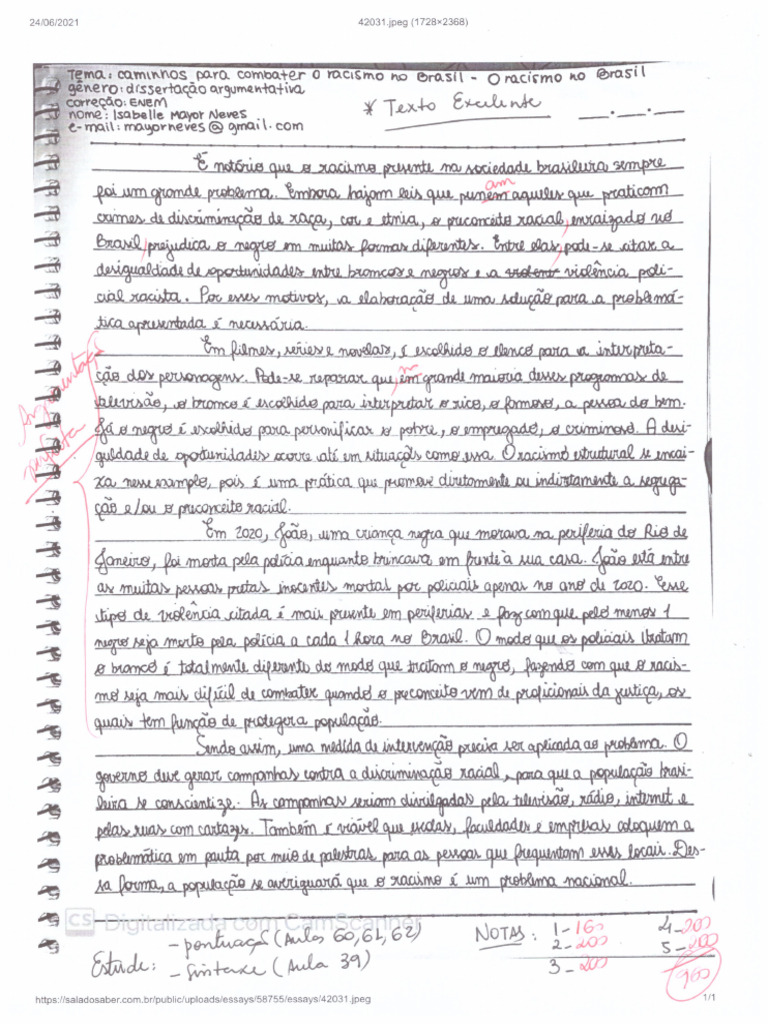 24/06/2021 42031.jpeg (1728×2368)
Tema: caminhos para combater o racismo no Brasil - O racismo no Brasil
gênero: dissertação argumentativa
correção: ENEM
nome: Isabelle Mayor Neves
e-mail: mayorneves@gmail.com
* Texto Excelente
É notório que o racismo presente na sociedade brasileira sempre
foi um grande problema. Embora hajam leis que punem aqueles que praticam
am
crimes de discriminação de raça, cor e etnia, o preconceito racial, enraizado no
Brasil, prejudica o negro em muitas formas diferentes. Entre elas, pode-se citar a
desigualdade de oportunidades entre brancos e negros e a violenta violência poli-
cial racista. Por esses motivos, a elaboração de uma solução para a problemá-
tica apresentada é necessária.
Em filmes, séries e novelas, é escolhido o elenco para a interpreta-
ção dos personagens. Pode-se reparar que, em grande maioria desses programas de
televisão, o branco é escolhido para interpretar o rico, o famoso, a pessoa do bem.
Já o negro é escolhido para personificar o pobre, o empregado, o criminoso. A desi-
guldade de oportunidades ocorre até em situaçãs como essa. O racismo estrutural se encai-
xa nesse exemplo, pois é uma prática que promove diretamente ou indiretamente a segrega-
ção e/ou o preconceito racial.
Em 2020, João, uma criança negra que morava na periferia do Rio de
Janeiro, foi morta pela polícia enquanto brincava em frente à sua casa. João está entre
as muitas pessoas pretas inocentes mortal por policiais apenas no ano de 2020. Esse
tipo de violência citada é mais presente em periferias e faz com que pelo menos 1
negro seja morto pela polícia a cada 1 hora no Brasil. O modo que os policiais tratam
o branco é totalmente diferente do modo que tratam o negro, fazendo com que o racis-
mo seja mais difícil de combater quando o preconceito vem de proficionais da justiça, os
quais tem função de proteger a população.
Argumentação
perfeita
Sendo assim, uma medida de intervenção precisa ser aplicada ao problema. O
governo deve gerar campanhas contra a discriminação racial, para que a população brasi-
leira se conscientize. As campanhas seriam divulgadas pela televisão, rádio, internet e
pelas ruas com cartazes. Também é viável que escolas, faculdades e empresas coloquem a
problemática em pauta por meio de palestras para as pessoas que frequentam esses locais. Des-
sa forma, a população se averiguará que o racismo é um problema nacional.
CS Digitalizada com CamScanner
Estude: - pontuaçã (Aulas 60,61,62)
- Sintaxe (Aula 39)
NOTAS: 1 - 160 4 - 200
2 - 200 5 - 200
3 - 200 960
https://saladosaber.com.br/public/uploads/essays/58755/essays/42031.jpeg 1/1